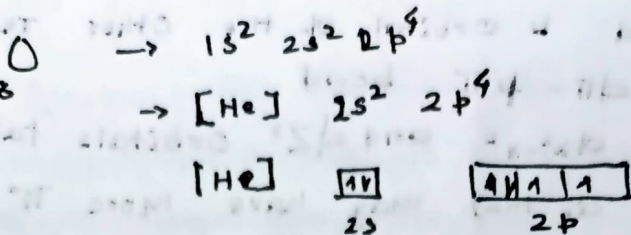 ₈O → 1s² 2s² 2p⁴
→ [He] 2s² 2p⁴
[He] [↑↓] [↑↓|↑|↑]
2s 2p